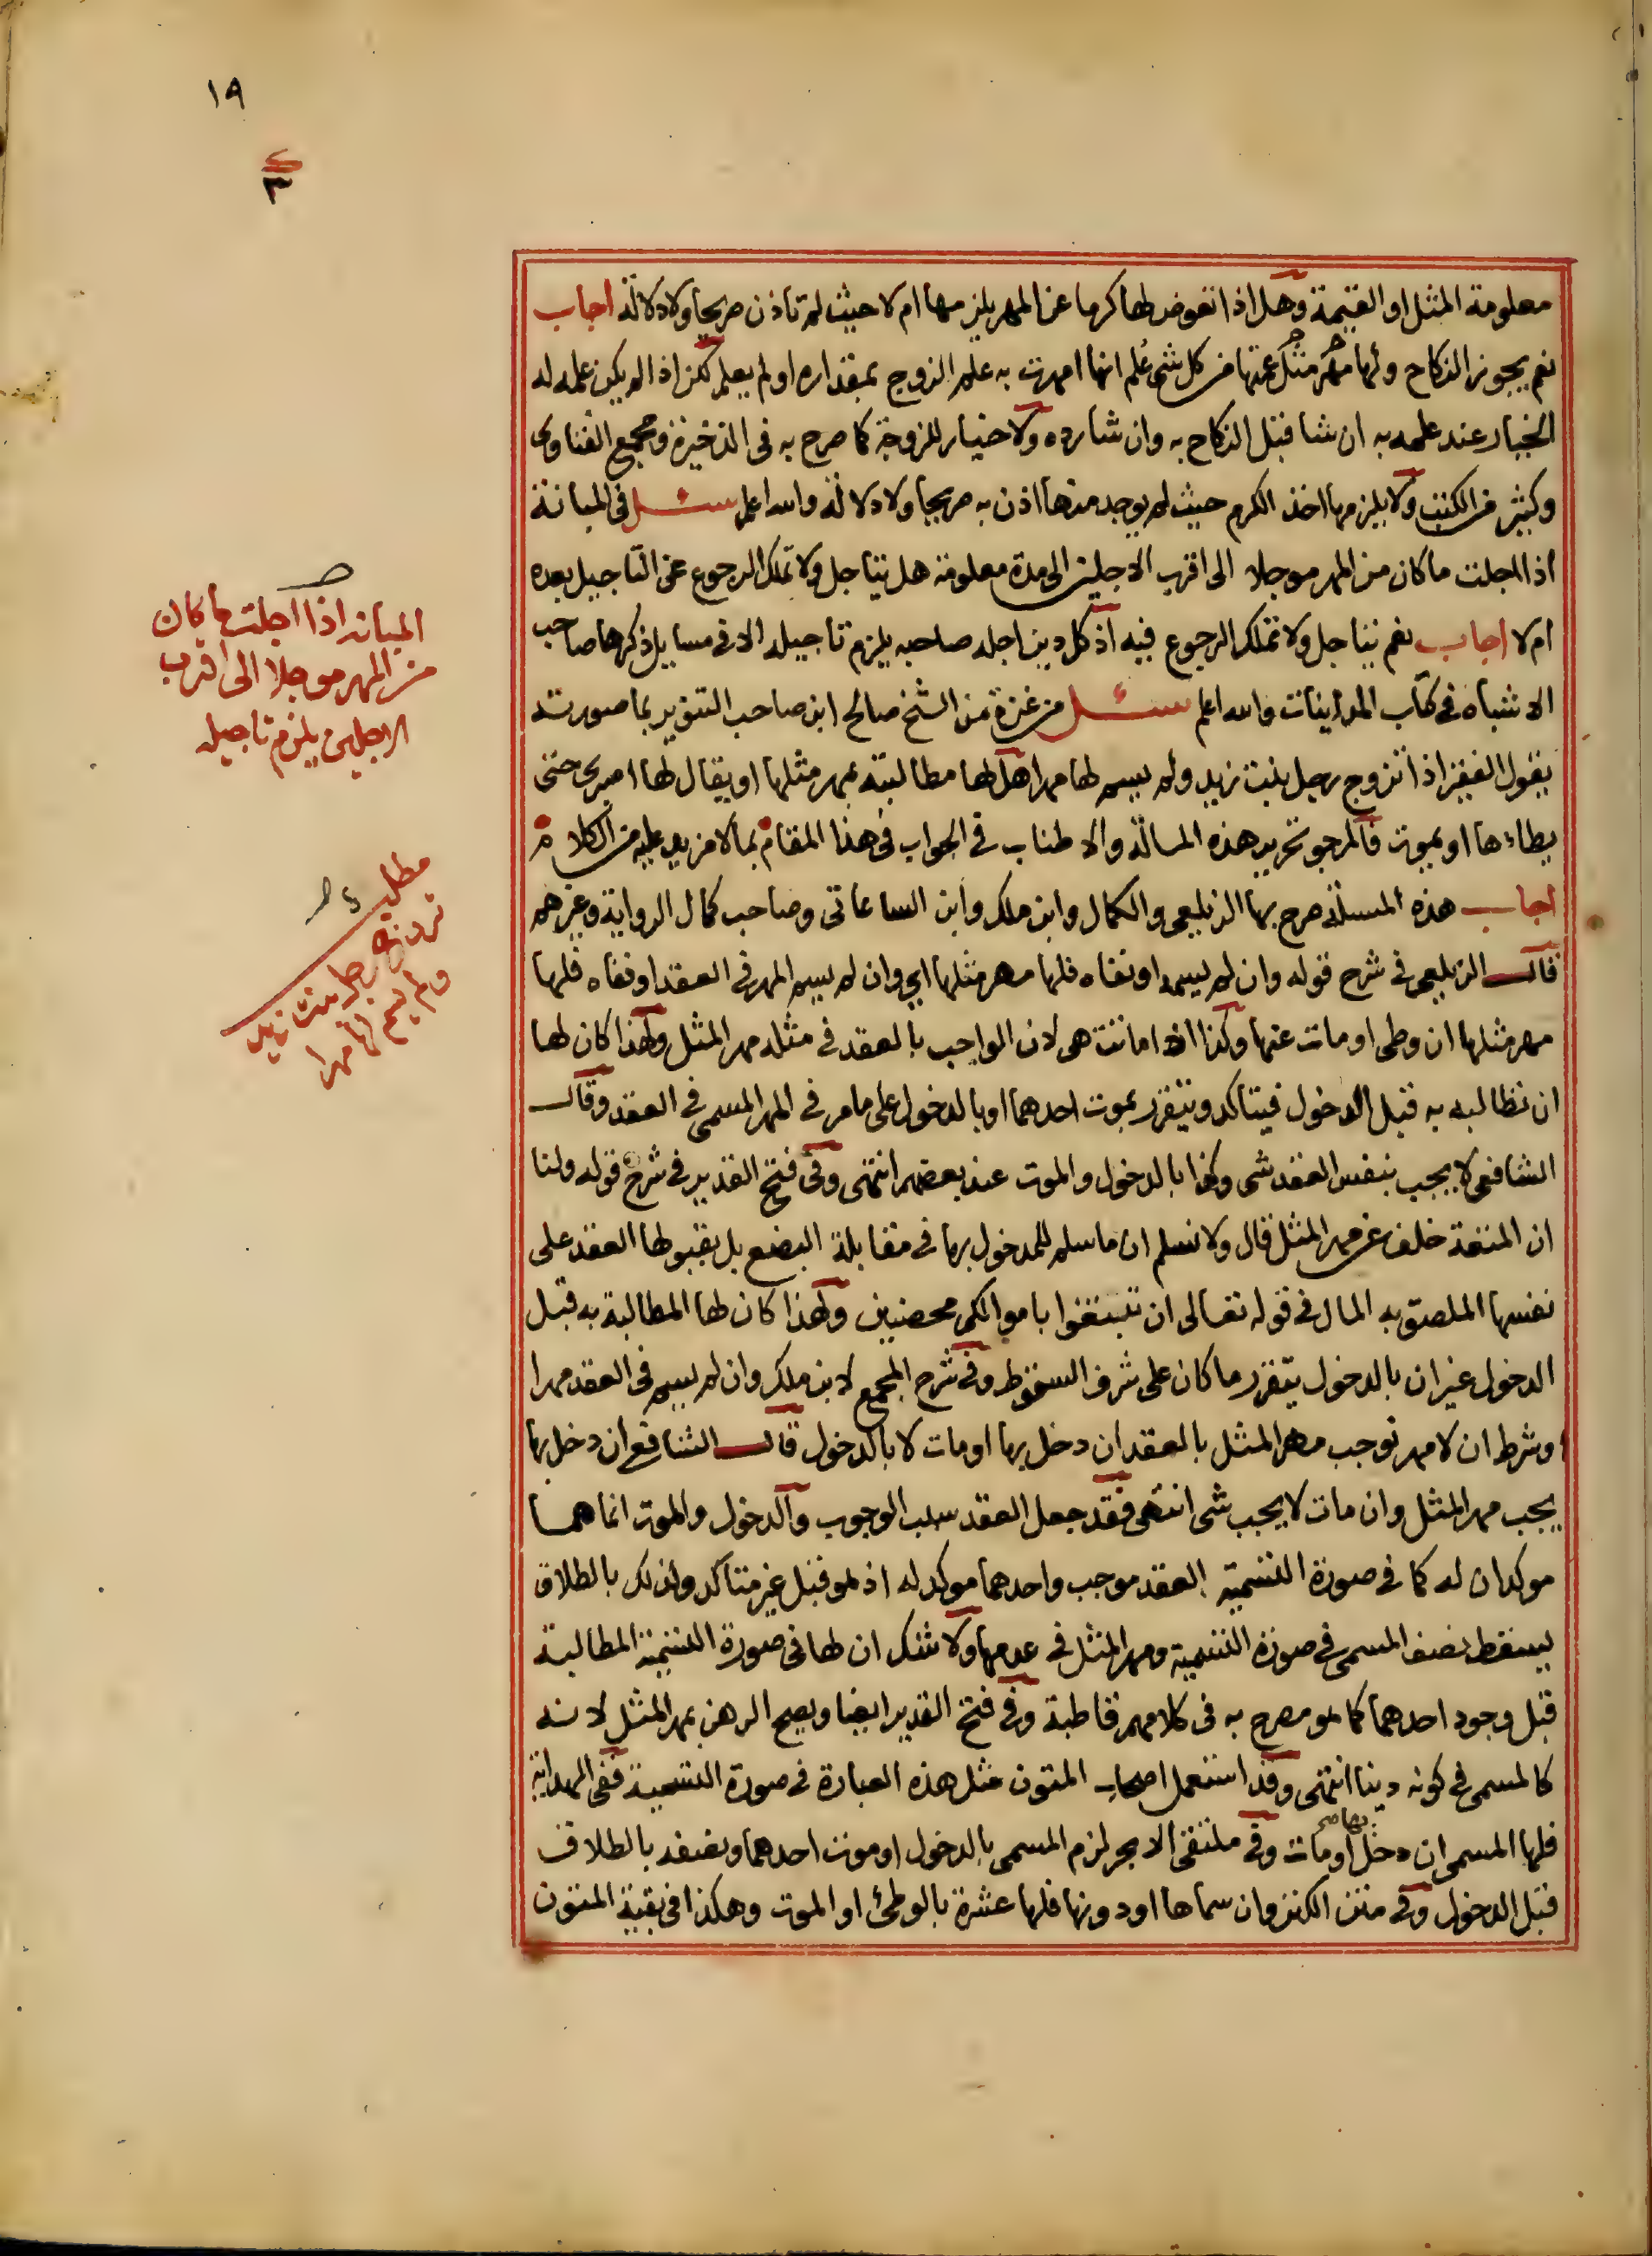 ١٩
٣
معلومة المثل او القيمة وهل اذا تعوض لها كرما عن المهر يلزمها ام لا حيث لم تاذن صريحا ولا دلالة اجاب
نعم يجوز النكاح ولها مهر مثل عمتها من كل شئ علم انها امهرت به علم الزوج بمقداره او لم يعلم لكن اذا لم يكن علمه له
الخيار عند علمه به ان شا قبل النكاح به وان شا رده ولا خيار للزوجة كما صرح به فى الذخيرة ومجمع الفتاوى
وكثير من الكتب ولا يلزمها اخذ الكرم حيث لم يوجد منها اذن به صريحا ولا دلالة والله اعلم سئل فى المبانة
اذا اجلت ما كان من المهر موجلا الى اقرب الاجلين الى مدة معلومة هل يتاجل ولا تملك الرجوع عن التاجيل بعده
ام لا اجاب نعم يتاجل ولا تملك الرجوع فيه اذ كل دين اجله صاحبه يلزم تاجيله الا فى مسايل ذكرها صاحب
الاشباه فى كتاب المداينات والله اعلم سئل من غزة من الشيخ صالح ابن صاحب التنوير بما صورته
يقول الفقير اذا تزوج رجل بنت زيد ولم يسم لها مهرا هل لها مطالبته بمهر مثلها او يقال لها اصبرى حتى
يطاءها او يموت فالمرجو تحرير هذه المسالة والاطناب فى الجواب فى هذا المقام بما لا مزيد عليه من الكلام
اجاب هذه المسئلة صرح بها الزيلعى والكمال وابن ملك وابن الساعاتى وصاحب كمال الرواية وغيرهم
قال الزيلعى فى شرح قوله وان لم يسمه او نفاه فلها مهر مثلها اى وان لم يسم المهر فى العقد او نفاه فلها
مهر مثلها ان وطى او مات عنها وكذا اذا ماتت هى لان الواجب بالعقد فى مثله مهر المثل ولهذا كان لها
ان تطالبه به قبل الدخول فيتاكد ويتقرر بموت احدهما او بالدخول على ما مر فى المهر المسمى فى العقد وقال
الشافعى لا يجب بنفس العقد شى وكذا بالدخول والموت عند بعضهم انتهى وفى فتح القدير فى شرح قوله ولنا
ان المتعة خلف عن مهر المثل قال ولا نسلم ان ما سلم للمدخول بها فى مقابلة البضع بل بقبولها العقد على
نفسها الملصق به المال فى قوله تعالى ان تبتغوا باموالكم محصنين ولهذا كان لها المطالبة به قبل
الدخول غير ان بالدخول يتقرر ما كان على شرف السقوط وفى شرح المجمع لابن ملك وان لم يسم فى العقد مهرا
وشرط ان لا مهر نوجب مهر المثل بالعقد ان دخل بها او مات لا بالدخول قال الشافعى ان دخل بها
يجب مهر المثل وان مات لا يجب شى انتهى فقد جعل العقد سبب الوجوب والدخول والموت انما هما
موكدان له كما فى صورة التسمية العقد موجب واحدهما موكد له اذ هو قبل غير متاكد ولذلك بالطلاق
يسقط نصف المسمى فى صورة التسمية ومهر المثل فى عدمها ولا شك ان لها فى صورة التسمية المطالبة
قبل وجود احدهما كما هو مصرح به فى كلامهم قاطبة وفى فتح القدير ايضا ويصح الرهن بمهر المثل لانه
كالمسمى فى كونه دينا انتهى وقد استعمل اصحاب المتون مثل هذه العبارة فى صورة التسمية ففى الهداية
فلها المسمى ان دخل بها او مات وفى ملتقى الابحر لزم المسمى بالدخول او موت احدهما ونصفه بالطلاق
قبل الدخول وفى متن الكنز وان سماها او دونها فلها عشرة بالوطئ او الموت وهكذا فى بقية المتون
المبانه اذا اجلت ما كان
من المهر موجلا الى اقرب
الاجلين يلزم تاجيله
مطلب
تزوج رجل بنت زيد
ولم يسم لها مهرا